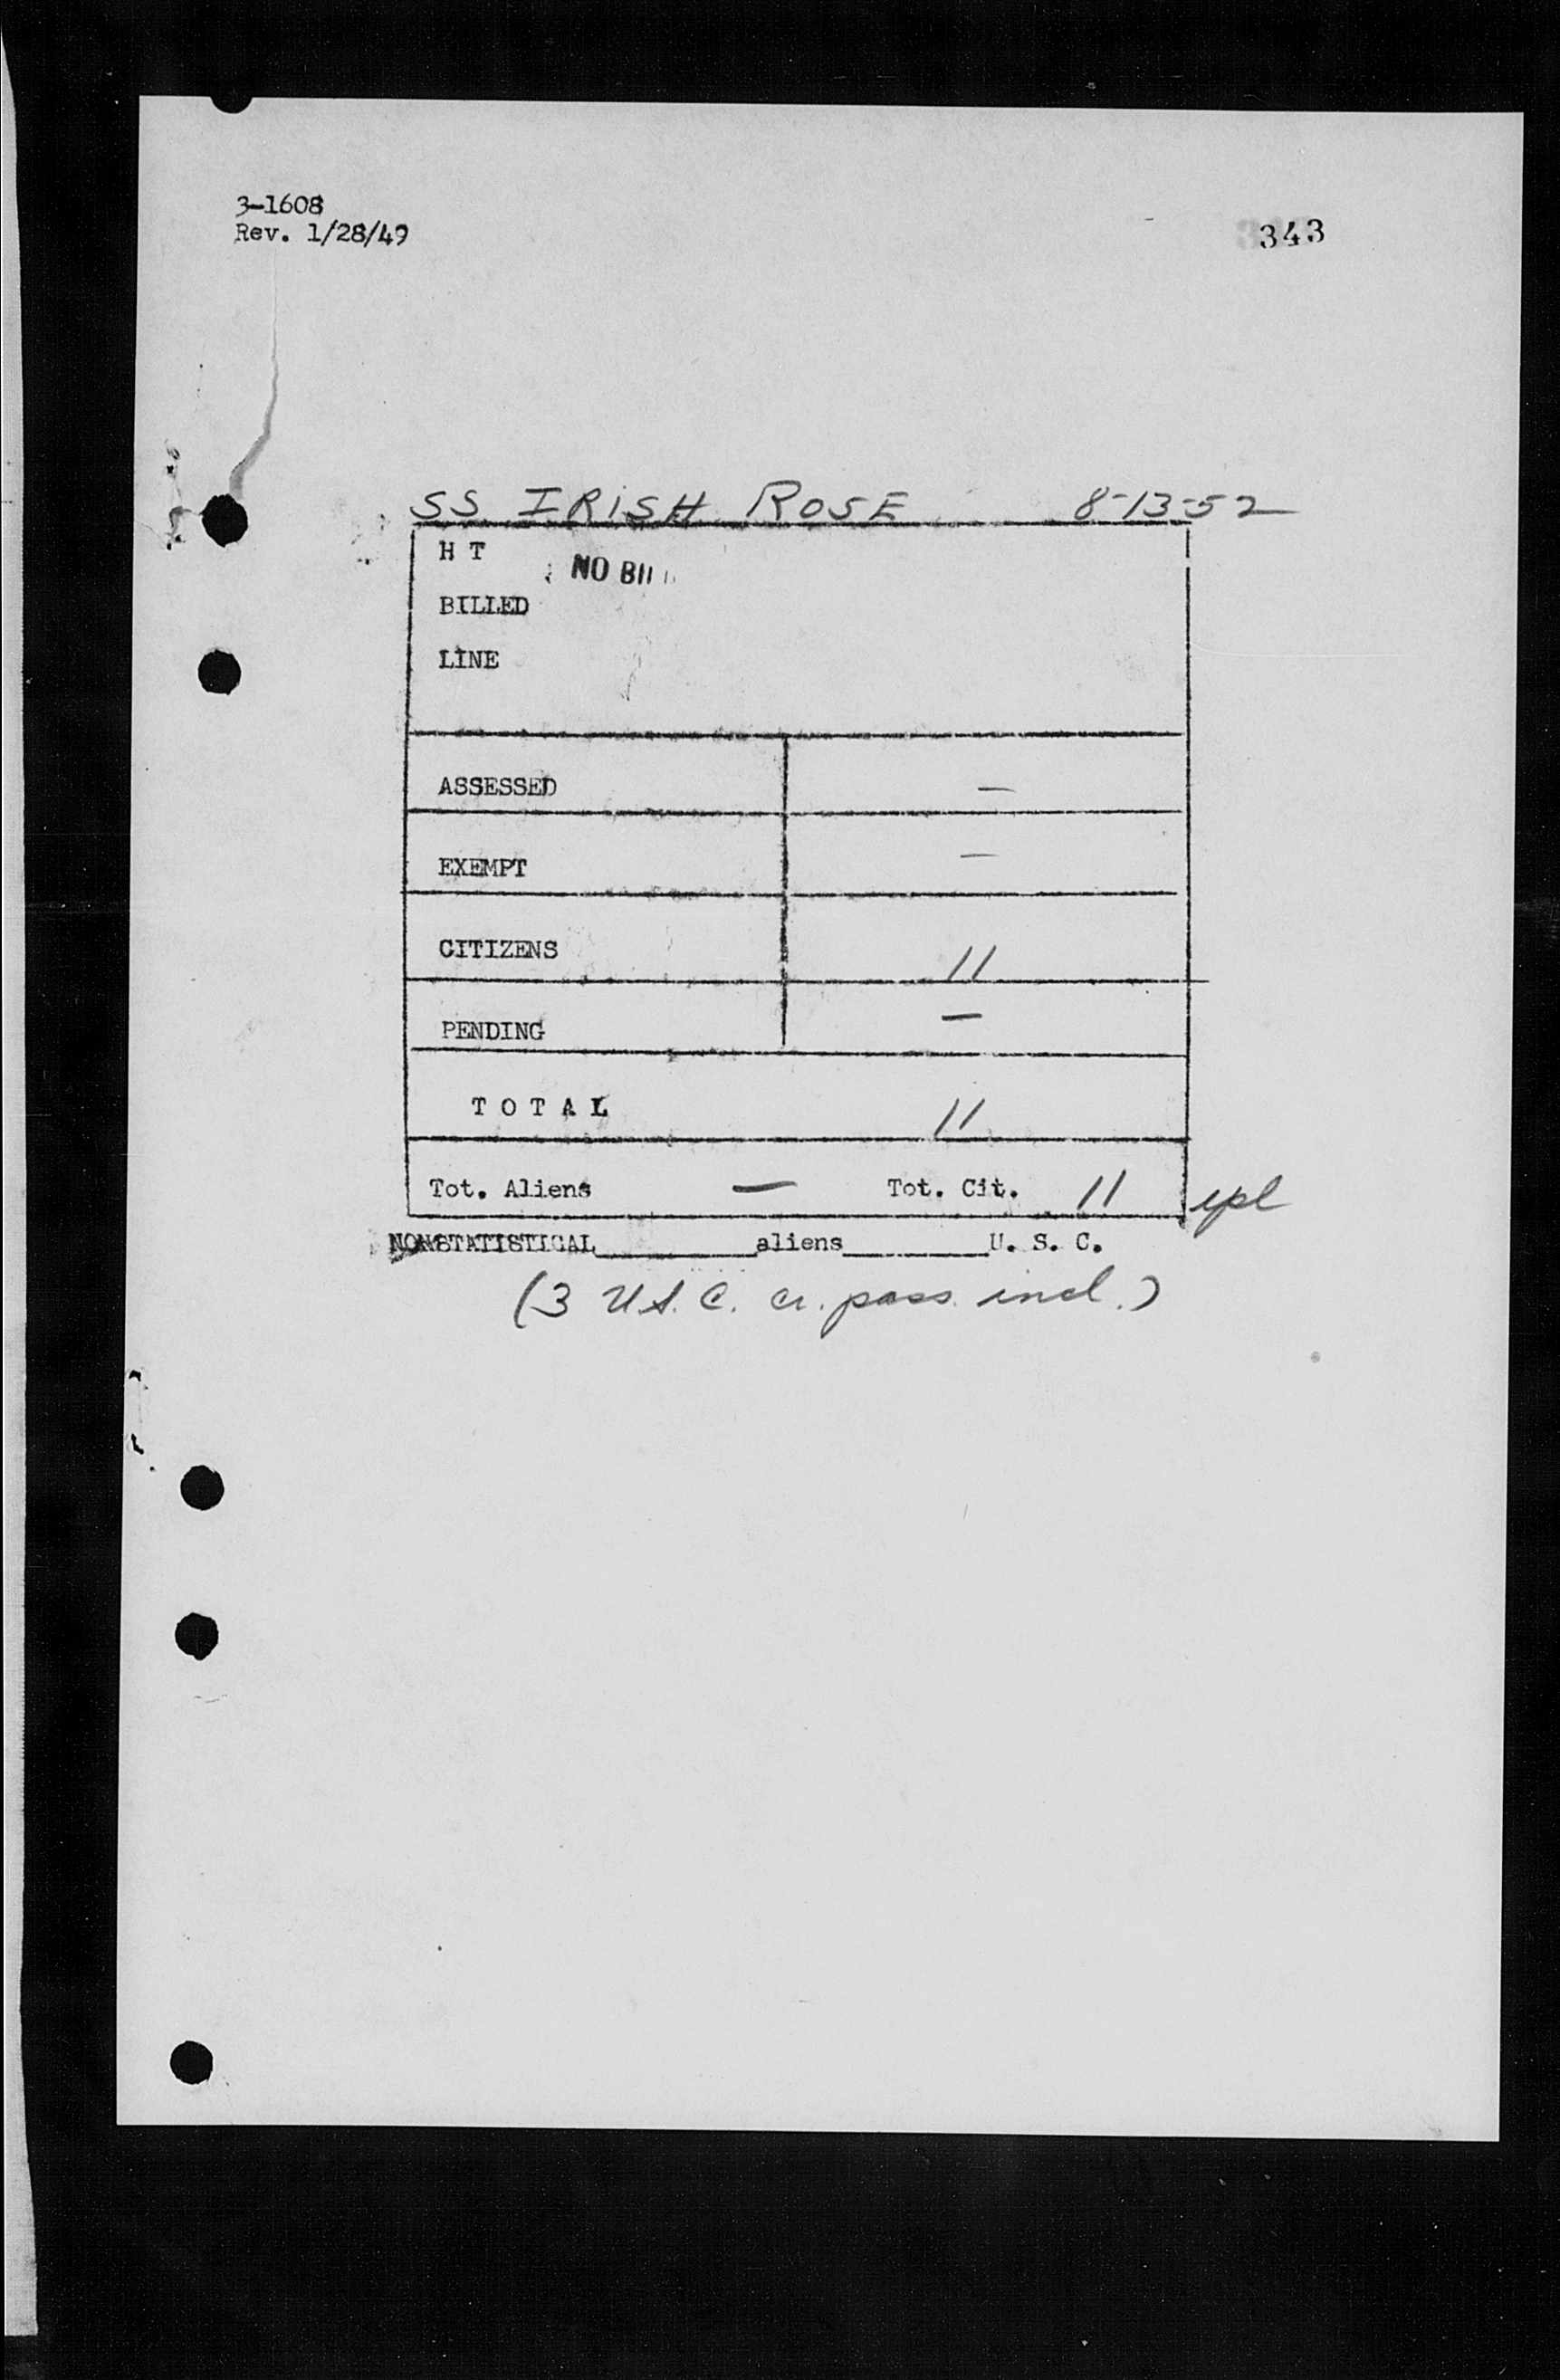 3-1608
Rev. 1/28/49
343
SS IRISH ROSE 8-13-52
H T
NO BILL
BILLED
LINE
ASSESSED —
EXEMPT —
CITIZENS 11
PENDING —
T O T A L 11
Tot. Aliens — Tot. Cit. 11
NONSTATISTICAL__________aliens__________U. S. C.
(3 U.S.C. cr. pass. incl.)